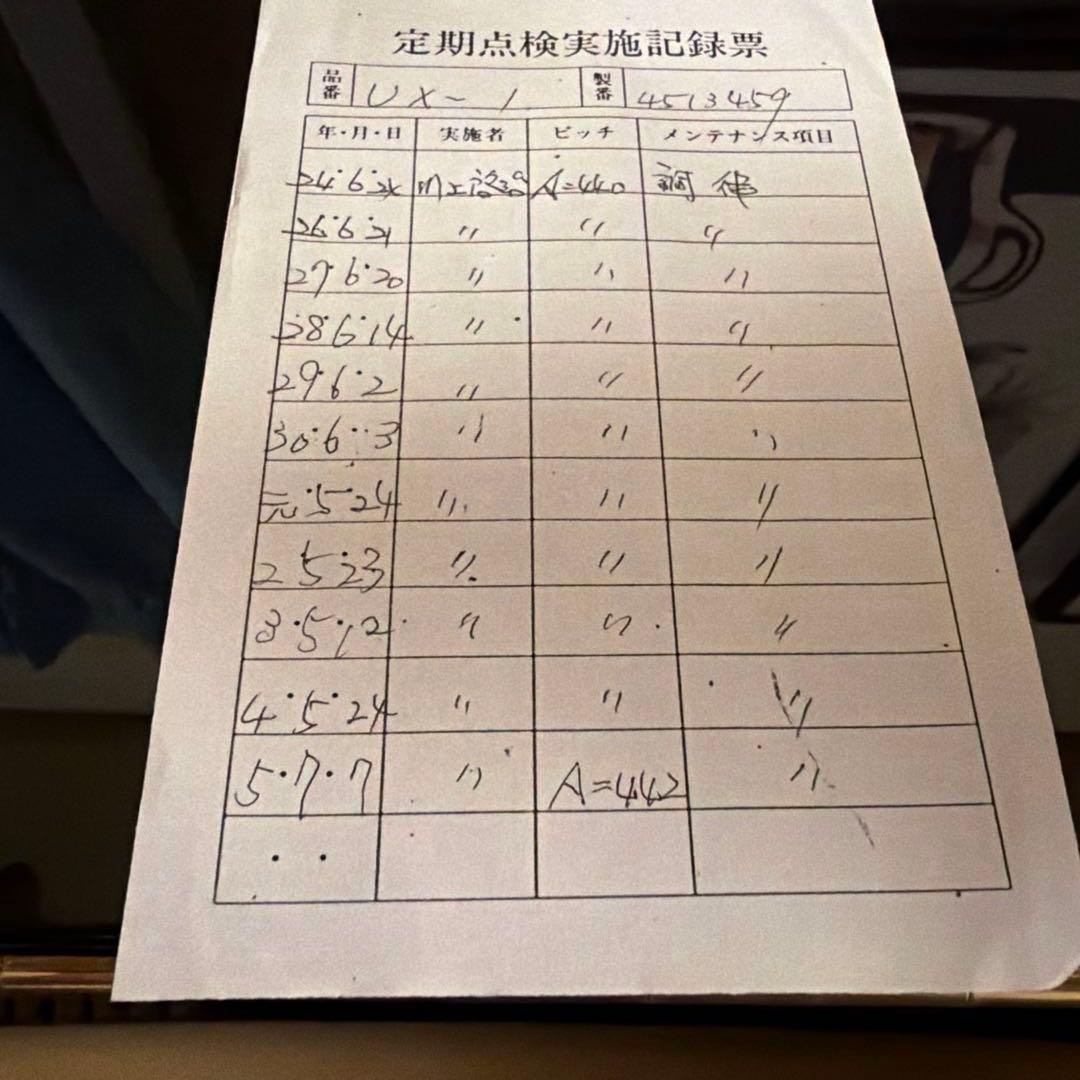 定期点検実施記録票
品番 UX-1 製番 4513459
年・月・日 実施者 ピッチ メンテナンス項目
24・6・24 A=440 調律
26・6・21 〃 〃 〃
27・6・20 〃 〃 〃
28・6・14 〃 〃 〃
29・6・2 〃 〃 〃
30・6・3 〃 〃 〃
元・5・24 〃 〃 〃
2 5・23 〃 〃 〃
3・5・12 〃 〃 〃
4・5・24 〃 〃 〃
5・7・7 〃 A=442 〃
・ ・